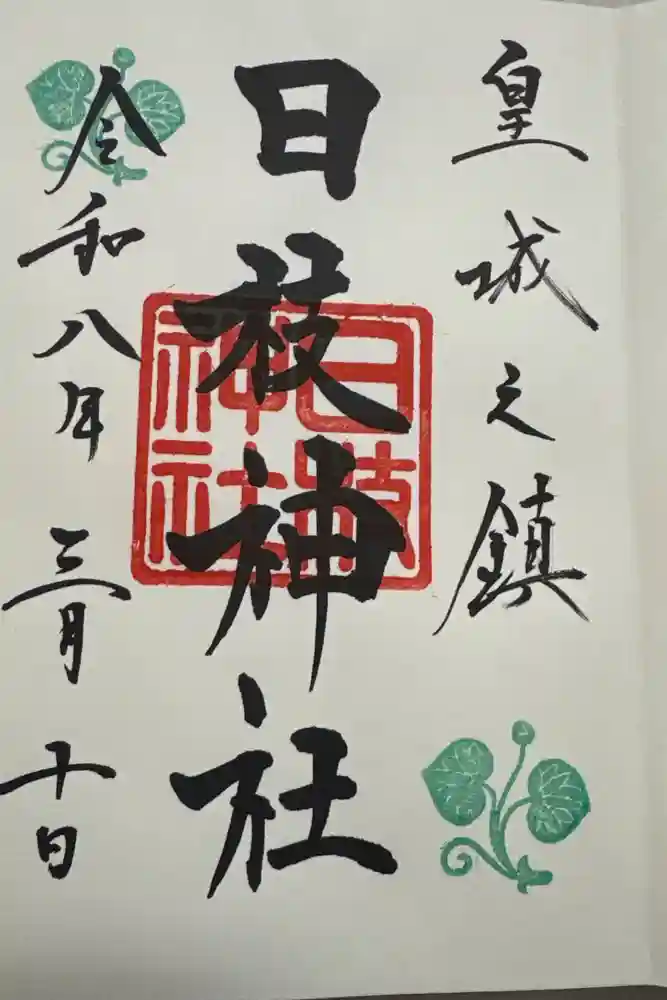 皇城之鎮
日枝神社
日枝神社
令和八年三月十日